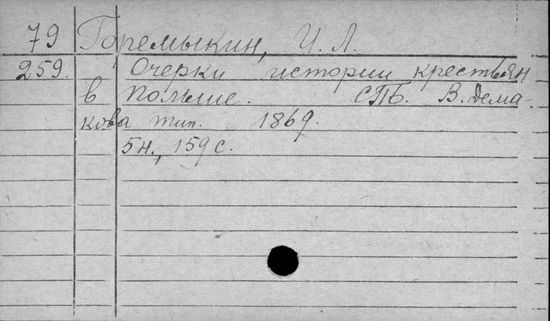 79 Горемыкин, И. Л.
259. Очерки истории крестьян
в Польше. СПБ. В. Дема-
кова тип. 1869.
5н., 159 с.